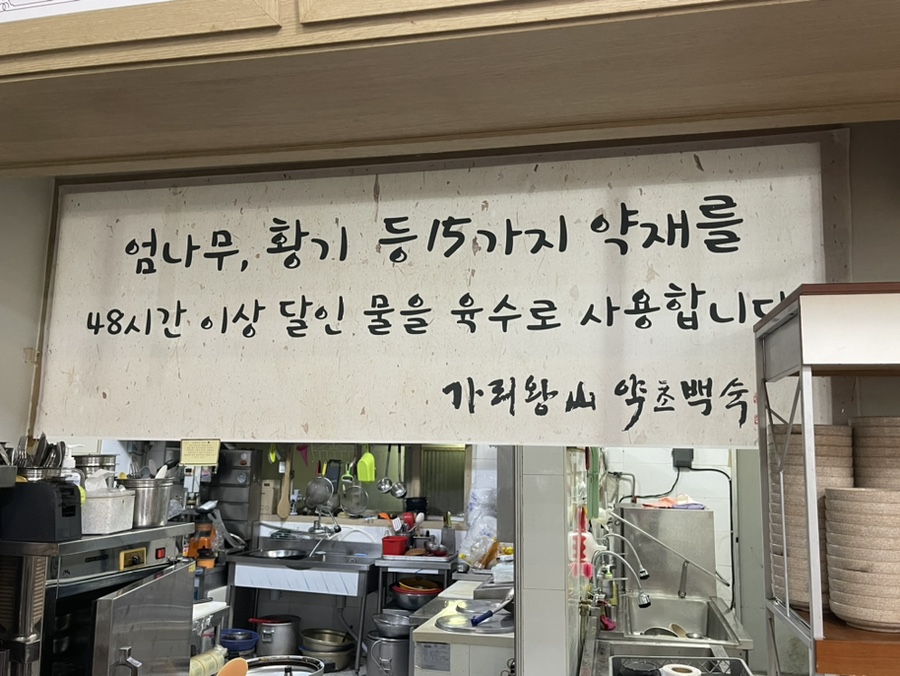 엄나무, 황기 등 15가지 약재를
48시간 이상 달인 물을 육수로 사용합니다
가리왕山 약초백숙